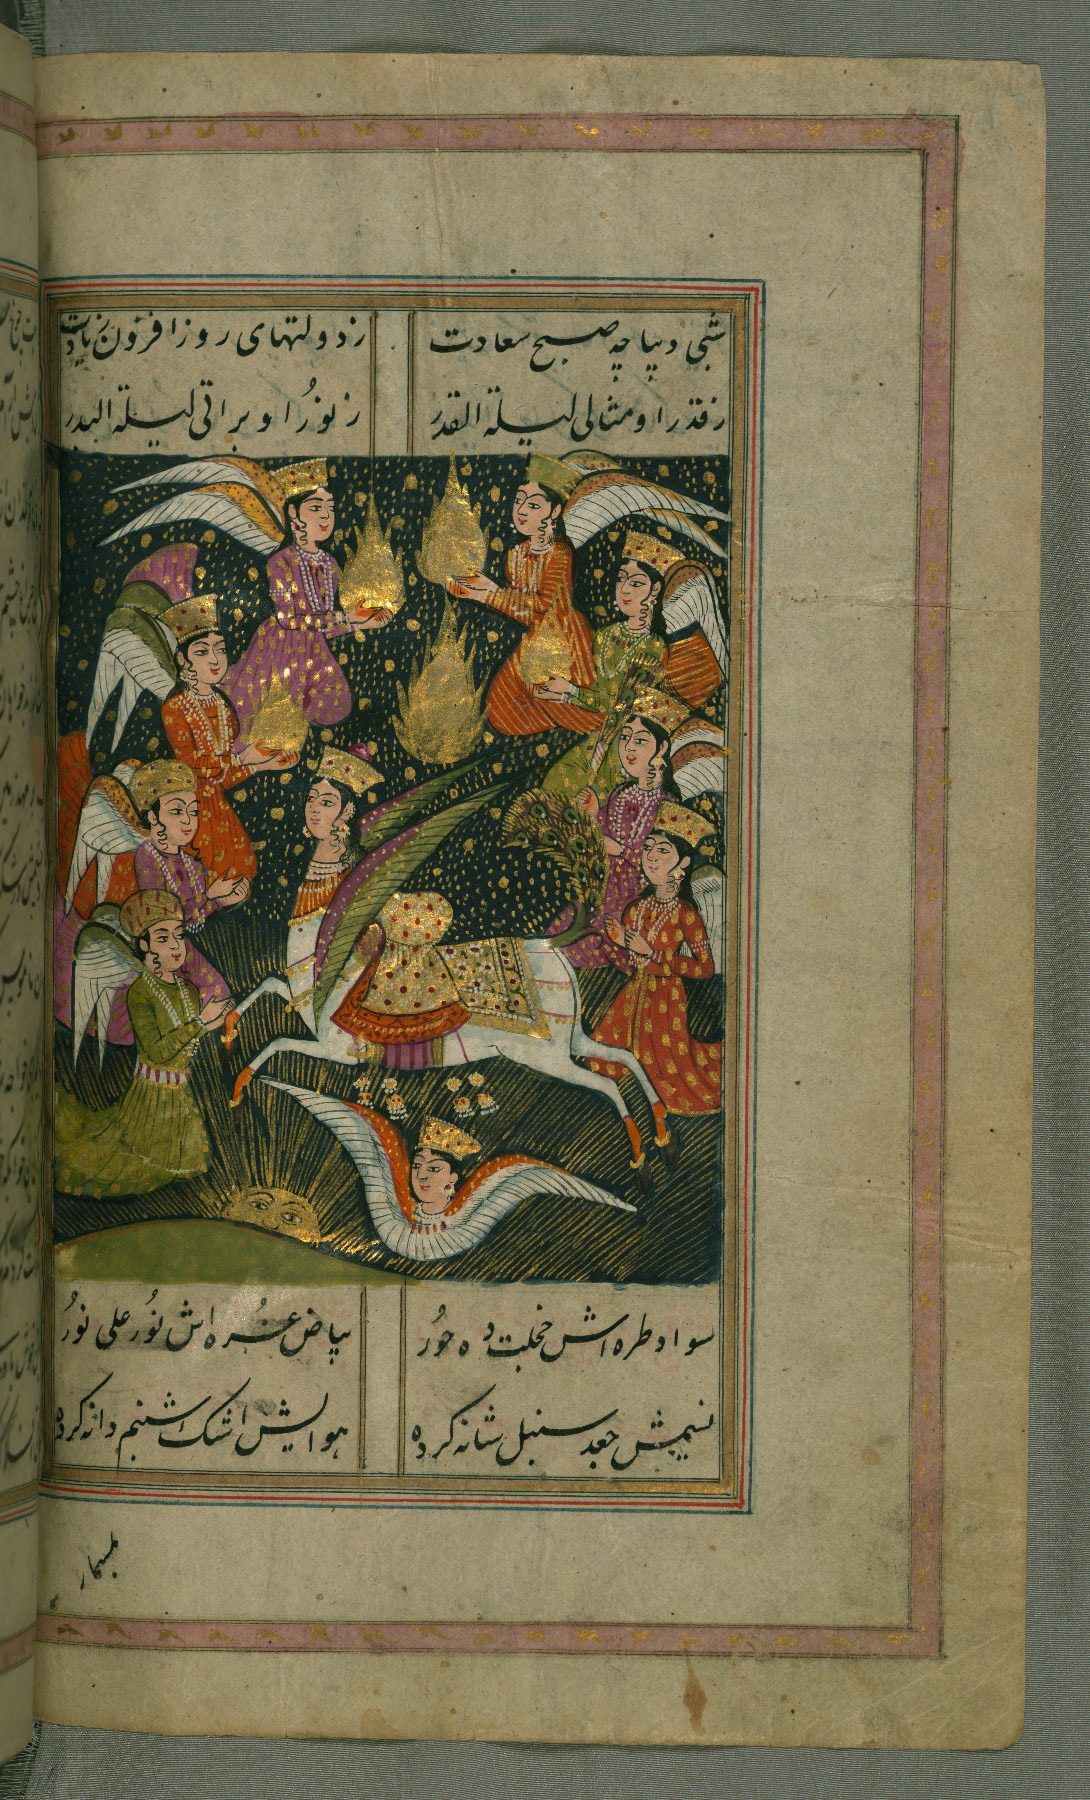 شبی دیباچه صبح سعادت
زدولتهای روز افزون زیادت
زقدر او مثالی لیلة القدر
زنور او براتی لیلة البدر
سواد طره اش خجلت ده حور
بیاض غره اش نور علی نور
نسیمش جعد سنبل شانه کرده
هوایش اشک شبنم دانه کرده
بمسمار